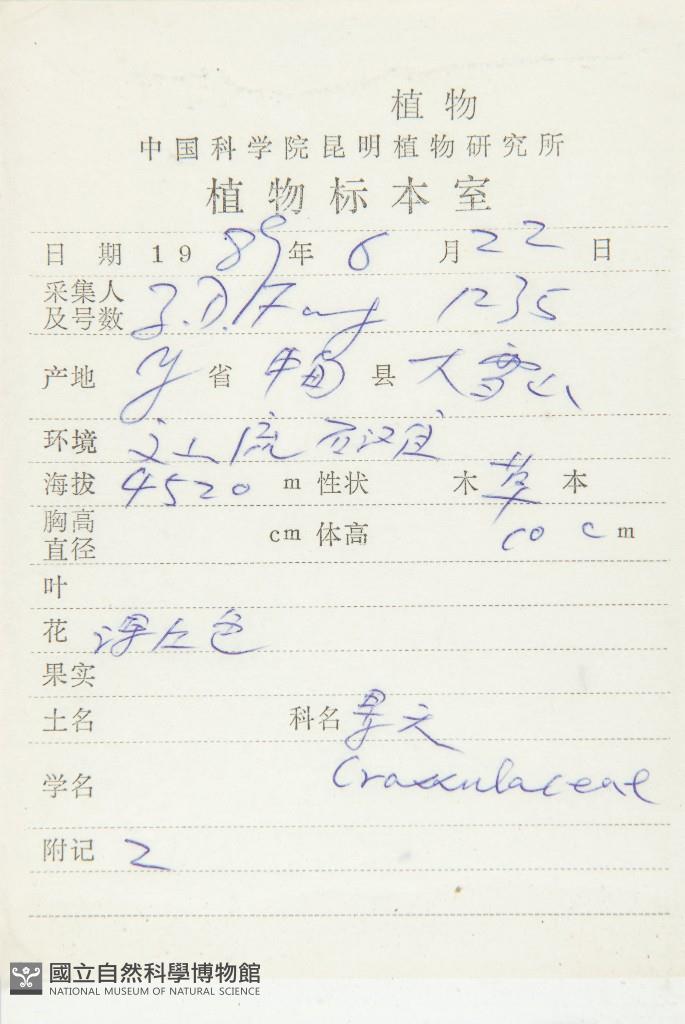 植物
中国科学院昆明植物研究所
植物标本室
日 期 1989年 6 月22 日
采集人及号数 Z.D.Fang 1235
产地 Y 省 中甸 县 大雪山
环境
海拔 4520 m 性状 木草本
胸高直径 cm 体高 10 cm
叶
花 深红色
果实
土名 科名 景天
学名 Crassulaceae
附记 2
國立自然科學博物館
NATIONAL MUSEUM OF NATURAL SCIENCE